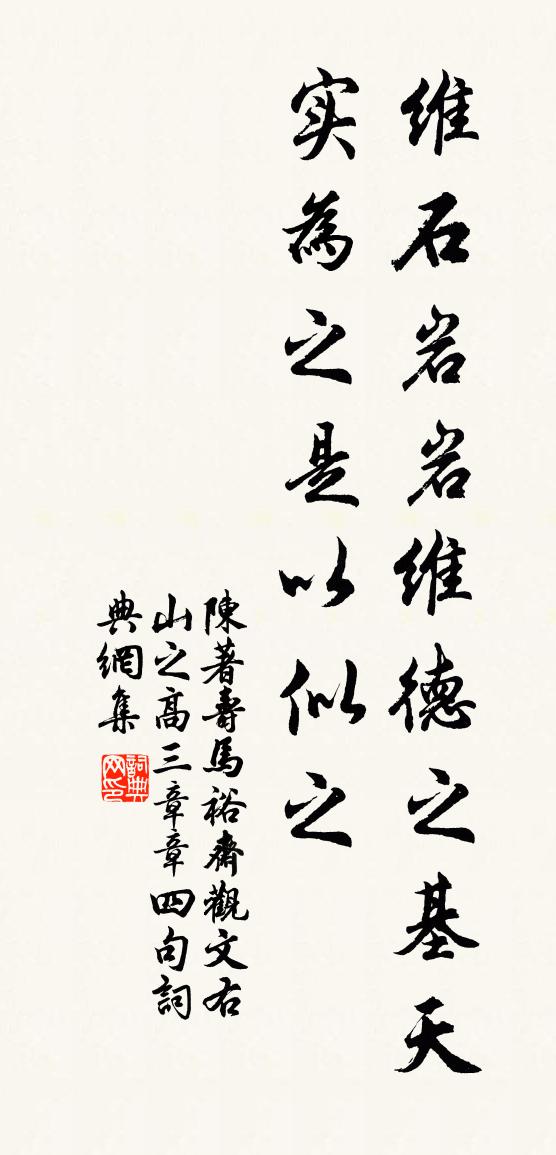 维石岩岩维德之基天
实為之是以似之
陳著壽馬裕齋觀文右
山之高三章章四句詞
典網集
詞典网印